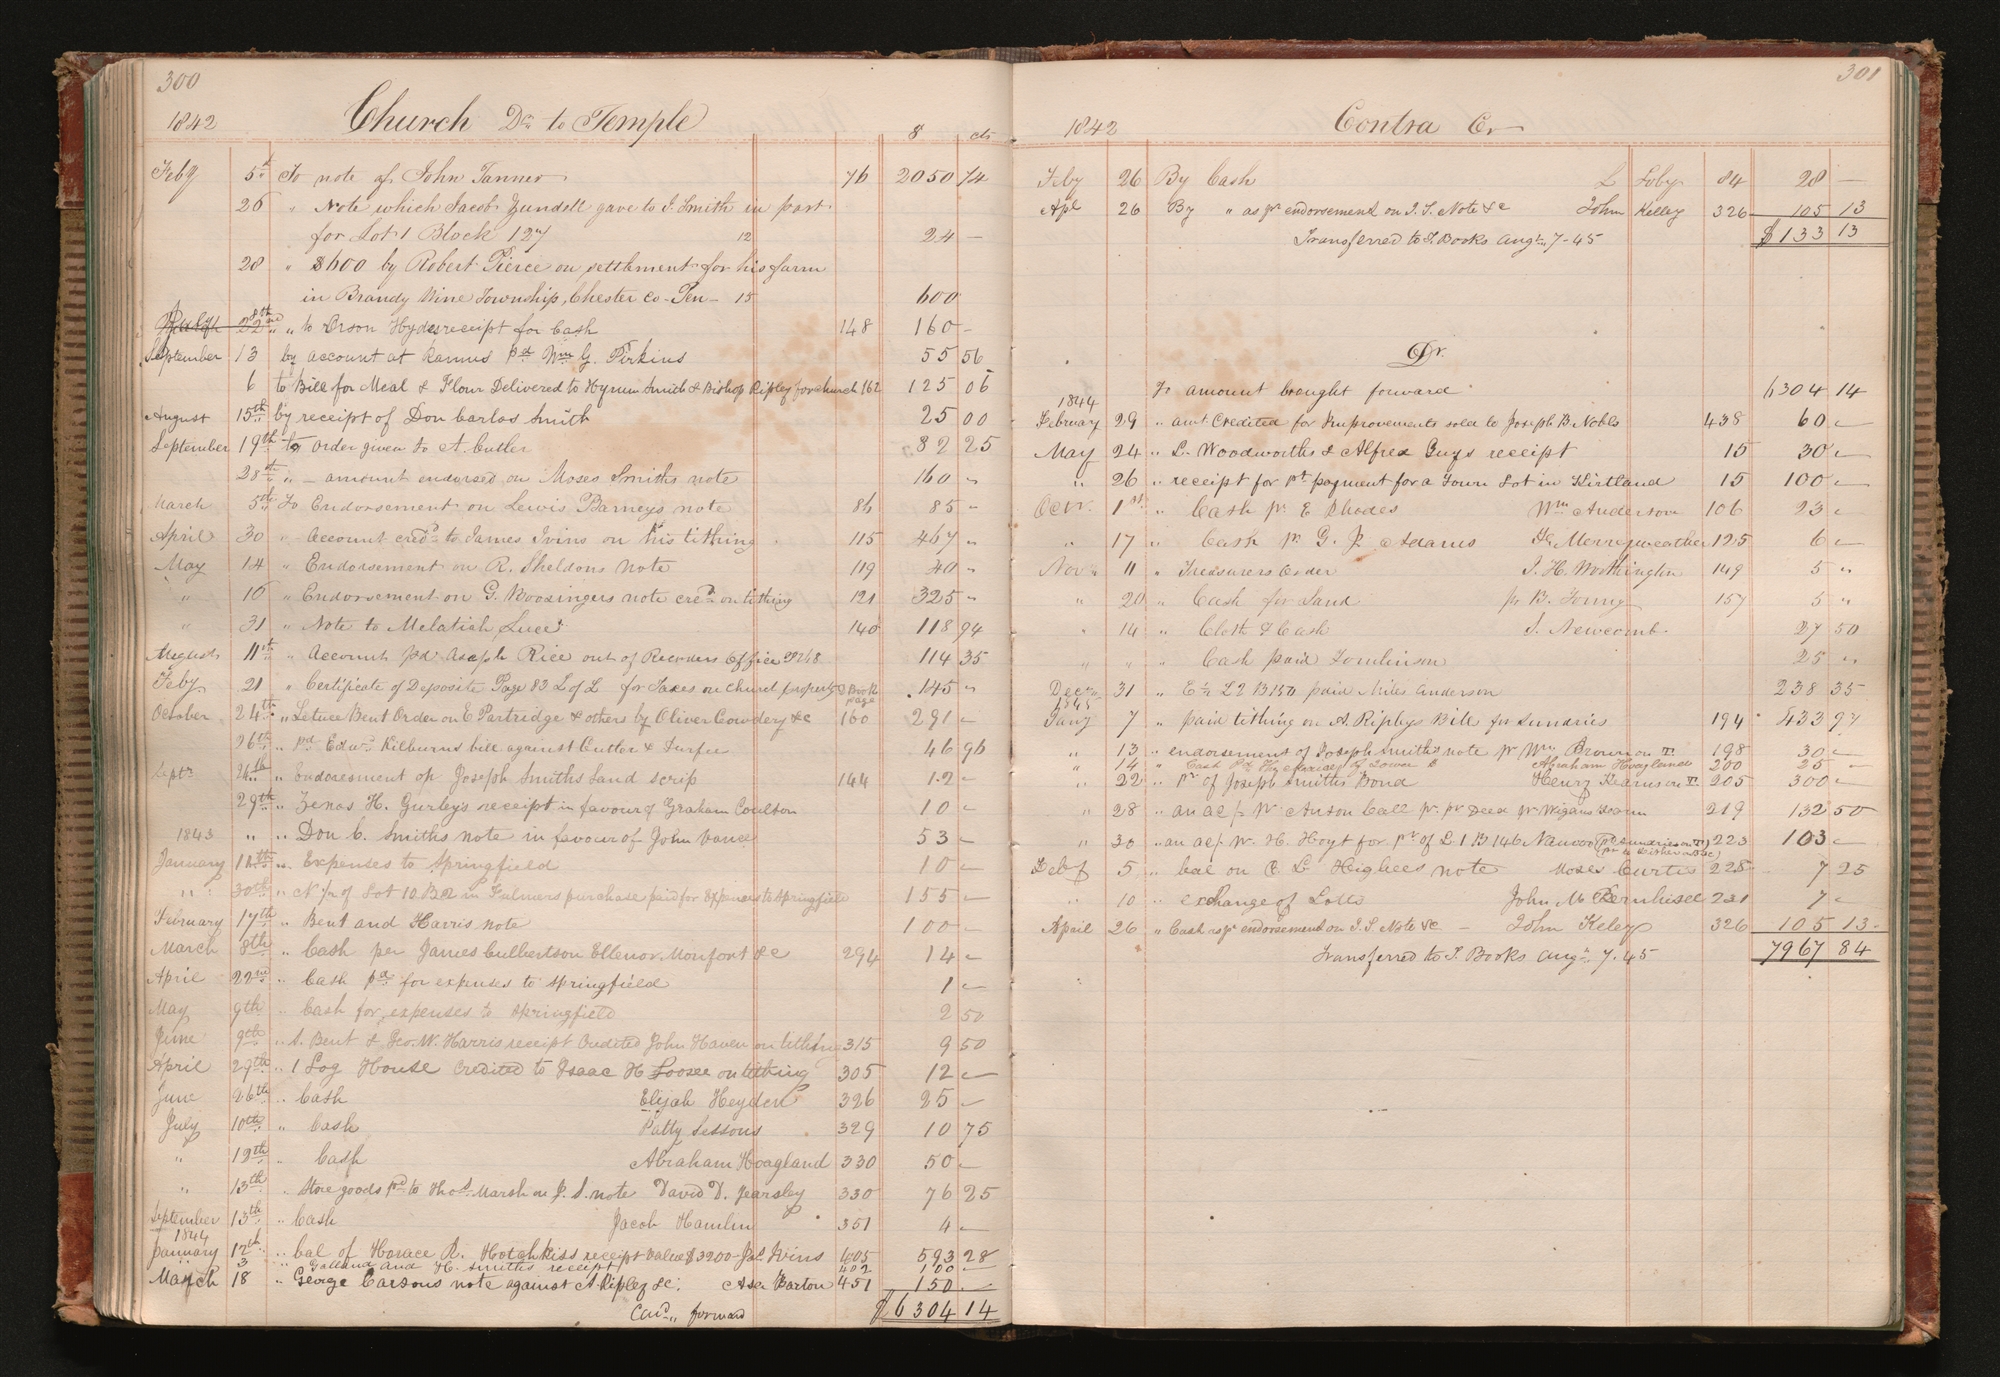 300
1842 Church Dr. to Temple $ cts
Feby 5th To note of John Tanner 76 2050 74
26 " Note which Jacob Zundell gave to J. Smith in part
for Lot 1 Block 127 12 24 —
28 " $600 by Robert Pierce on settlement for his farm
in Brandy Wine Township, Chester Co - Pen - 15 600
28th 22nd " " to Orson Hydes receipt for Cash 148 160 -
September 13 by account at Ramus pd Wm G. Perkins 55 56
6 to Bill for Meal & Flour Delivered to Hyrum Smith & Bishop Ripley for church 162 125 06
August 15th by receipt of Don Carlos Smith 25 00
September 19th to order given to A. Cutler 32 25
28th " - amount endorsed on Moses Smiths note 160 "
March 5th To Endorsement on Lewis Barneys note 86 85 -
April 30 " Account cred.d to James Ivins on his tithing 115 467 "
May 14 " Endorsement on R. Sheldons note 119 40 "
" 16 " Endorsement on G. Boosingers note cred on tithing 121 325 "
" 31 " Note to Melatiah Luce 140 118 94
August 11th " Account pd Aseph Rice out of Recorders Office 114 35
Feby 21 " Certificate of Deposite Page 83 L of L for Taxes on Church property D Book page 145 "
October 24th " Letuce Bent Order on E Partridge & others by Oliver Cowdery &c 160 291 -
26th " pd Edwd Kilburns bill against Cutler & Durfee 46 96
Septr 24th " Endoresment on Joseph Smiths Land scrip 144 12 -
29th " Zenos H. Gurley's receipt in favour of Graham Coulton 10 -
1843 " " Don C. Smiths note in favour of John Vance 53 -
January 18th " Expenses to Springfield 10 -
" 30th " N ½ of Lot 10 B 2 in Fulmers purchase paid for Expenses to Springfield 155 -
February 17th " Bent and Harris note 100 -
March 8th " Cash per James Culbertson Ellenor Monfort &c 294 14 -
April 22nd " Cash pd for expenses to Springfield 1 -
May 9th " Cash for expenses to Springfield 2 50
June 9th " S. Bent & Geo. W. Harris receipt Credited John Haven on tithing 315 9 50
April 29th " 1 Log House Credited to Isaac H Loosee on tithing 305 12 -
June 26th " Cash Elijah Heyden 326 25 -
July 10th " Cash Patty Sessons 329 10 75
" 12th " Cash Abraham Hoagland 330 50 -
" 13th " Store goods pd to Thos. Marsh on J. S. note David D. Yearsley 330 76 25
September 13th " Cash Jacob Hamlin 351 4 -
1844
January 12th " bal of Horace R. Hotchkiss receipt value $3200 - Jas Ivins 405 593 28
" 3 " Galland and H. Smiths receipt 402 100 -
March 18 " George Carsons note against A Ripley &c: Asa Barton 451 150 -
Card " forward $6304 14
301
1842 Contra Cr
Feby 26 By Cash L Soby 84 28 —
Apl 26 By " as pr endorsement on J. S. Note &c John Kelley 326 105 13
Transferred to T. Books Augt 7-45 $133 13
Dr.
To amount brought forward 6304 14
1844
February 29 " amt Credited for Improvements sold to Joseph B. Nobls 438 60 -
May 24 " L. Woodworths & Alfred Guys receipt 15 30 -
" 26 " receipt for pt payment for a Town Lot in Kirtland 15 100 -
Octr. 1st " Cash pr E Rhodes Wm Anderson 106 23 -
" 17 " Cash pr G. J. Adams F. Merryweather 125 6 -
Nov " 11 " Treasurers Order J. H. Worthington 149 5 "
" 20 " Cash for Land pr B. Young 157 5 "
" 14 " Cloth & Cash S. Newcomb 27 50
" " " Cash paid Tomlinson 25 "
Decr 31 " E ½ L 2 B 150 paid Miles Anderson 238 35
1845
Jany 7 " paid tithing on A. Ripleys Bill for Sundries 194 433 97
" 13 " endorsement of Joseph Smiths note pr Wm Brown on T. 198 30 -
" 14 " Cash Pd Abraham Hoagland 200 25 -
" 22 " pt of Joseph Smiths Bond Henry Kearns on T. 205 300 -
" 28 " an ac/ pr Anson Call pr pr Deed pr Wigans Room 219 132 50
" 30 " an ac/ pr H. Hoyt for pt of L 1 B 146 Nauvoo 223 103 -
Feby 5 " bal on C. L Higbees note Moses Curtis 228 7 25
" 10 " exchange of Lotts John M Bernhisel 231 7 -
April 26 " Cash as pr endorsement on J. S. Note &c - John Keley 326 105 13
Transferred to T. Books Augt 7-45 7967 84